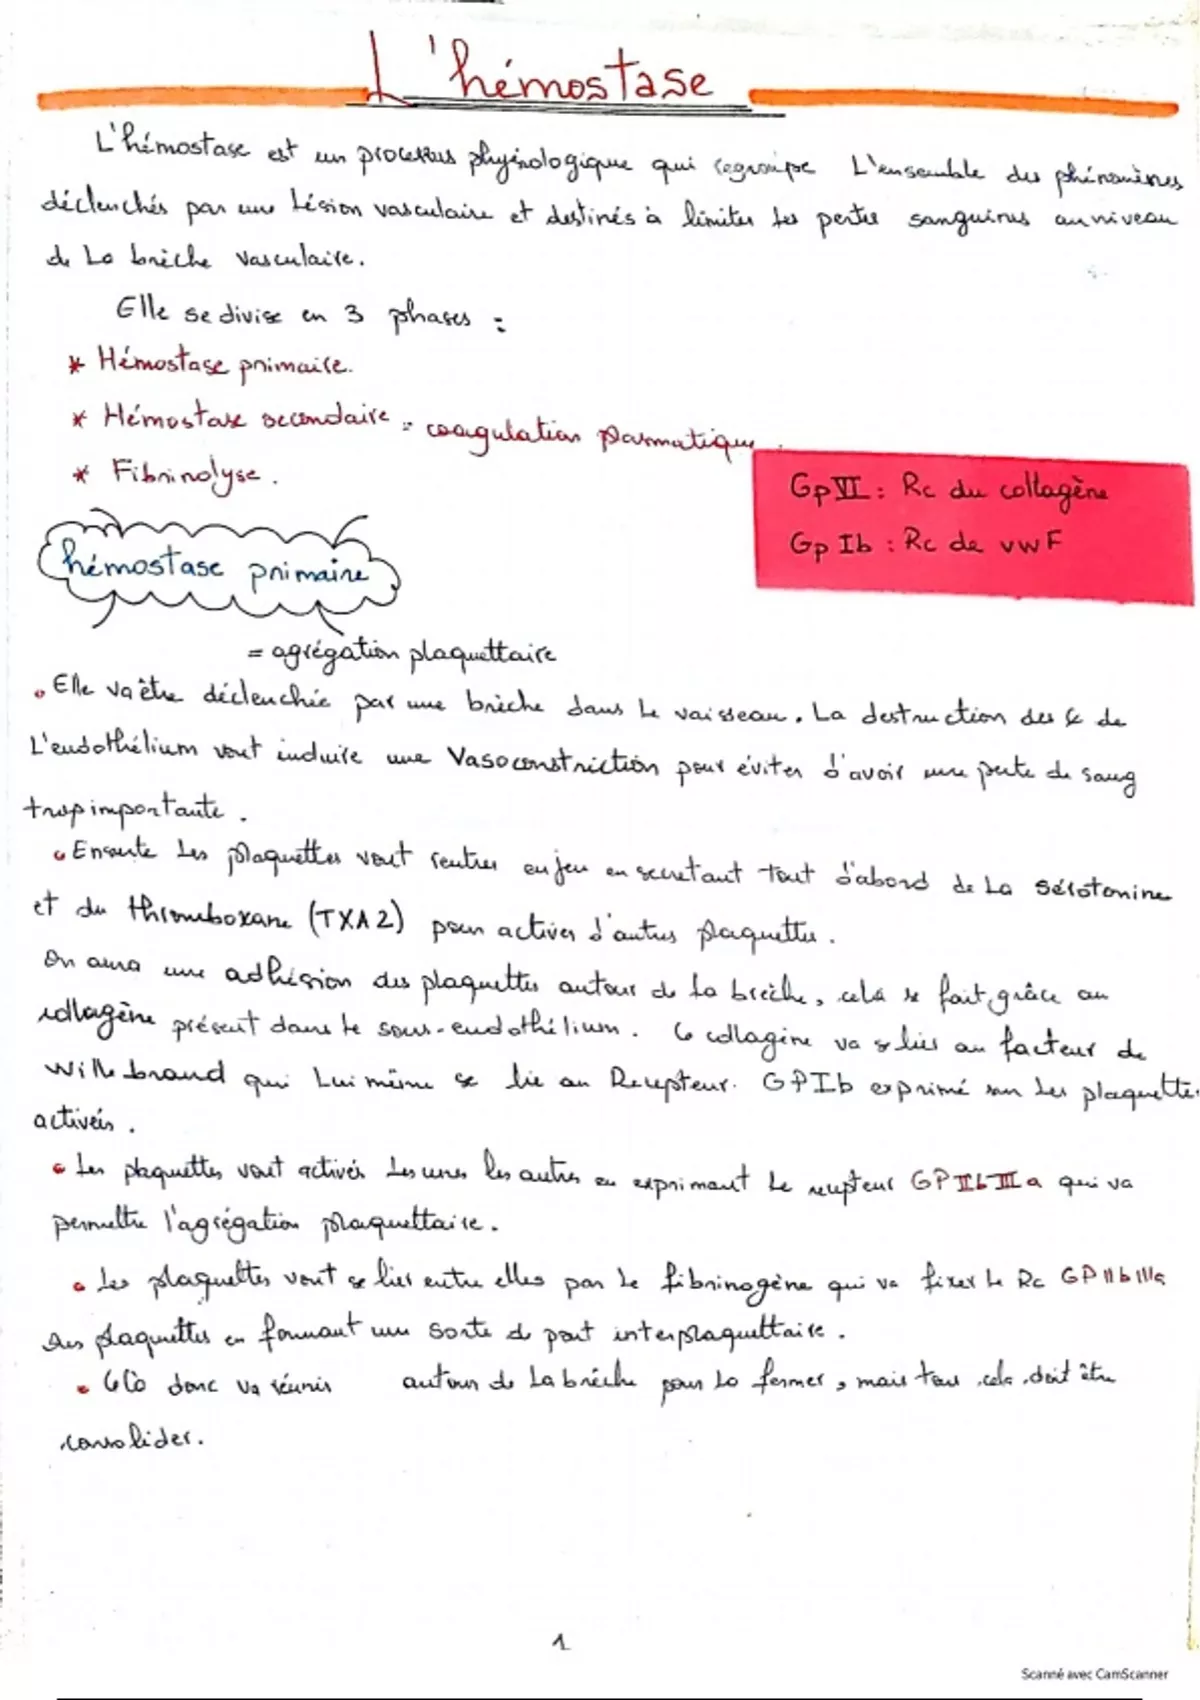 L'hémostase
L'hémostase est un processus physiologique qui regroupe L'ensemble des phénomènes
déclenchés par une Lésion vasculaire et destinés à limiter les pertes sanguines au niveau
de La brèche vasculaire.
Elle se divise en 3 phases :
* Hémostase primaire.
* Hémostase secondaire = coagulation plasmatique.
* Fibrinolyse.
GpVI : Rc du collagène
Gp Ib : Rc de vwF
hémostase primaire
= agrégation plaquettaire
• Elle va être déclenchée par une brèche dans le vaisseau. La destruction des de
L'endothélium vont induire une Vasoconstriction pour éviter d'avoir une perte de sang
trop importante.
• Ensuite Les plaquettes vont rentrer en jeu en secretant tout d'abord de La sérotonine
et du thromboxane (TXA2) pour activer d'autres plaquettes.
On aura une adhésion des plaquettes autour de La brèche, cela se fait grâce au
collagène présent dans le sous-endothélium. Le collagène va se lier au facteur de
Willebrand qui Lui même se lie au Recepteur. GPIb exprimé sur Les plaquettes
activées.
• Les plaquettes vont activés Les unes les autres en exprimant Le recepteur GPIIbIIIa qui va
permettre l'agrégation plaquettaire.
• Les plaquettes vont se lier entre elles par Le fibrinogène qui va fixer Le Rc GPIIbIIIa
des plaquettes en formant une sorte de pont interplaquettaire.
• donc va réunir autour de La brèche pour La fermer, mais tous cela doit être
consolider.
1
Scanné avec CamScanner